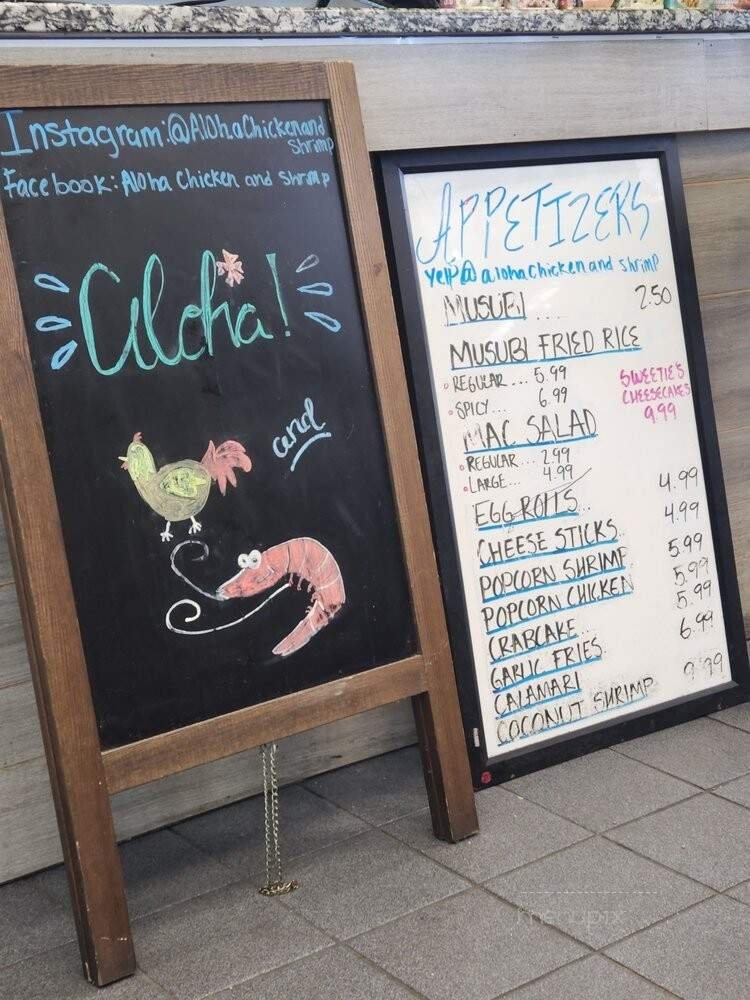 Instagram:@AlohaChickenand
Shrimp
Facebook: Aloha Chicken and Shrimp
aloha!
and
APPETIZERS
Yelp@alohachickenand shrimp
MUSUBI .... 2.50
MUSUBI FRIED RICE
• REGULAR... 5.99
• SPICY... 6.99
SWEETIE'S
CHEESECAKES
9.99
MAC SALAD
• REGULAR... 2.99
• LARGE... 4.99
EGG ROLLS... 4.99
CHEESE STICKS 4.99
POPCORN SHRIMP 5.99
POPCORN CHICKEN 5.99
CRABCAKE... 5.99
GARLIC FRIES 6.99
CALAMARI
COCONUT SHRIMP 9.99